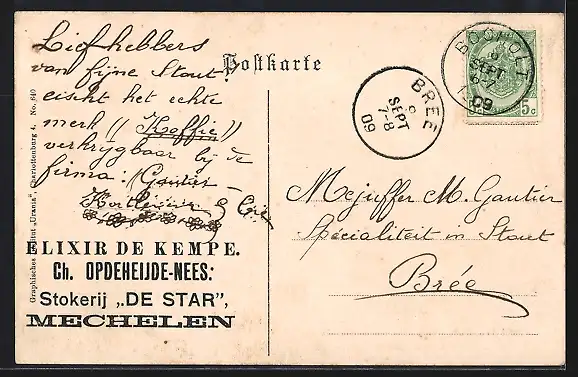 Postkarte
Liefhebbers
van fijne Stout!
eischt het echte
merk (( Koffie ))
verkrijgbaar bij de
firma: Gautier –
& Cie
ELIXIR DE KEMPE.
Ch. OPDEHEIJDE-NEES.
Stokerij „DE STAR",
MECHELEN
Graphisches Institut „Urania" Charlottenburg 4. No. 640
BREE
9
SEPT
7-8
09
BOCHOLT
SEPT
09
5c
Mejuffer M. Gautier
Spécialiteit in Stout
Brée